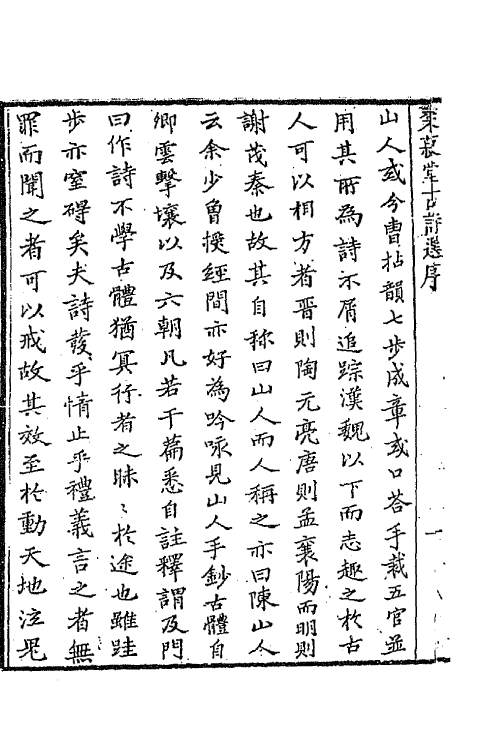 菽堂古詩選序
山人或令曹拈韻七步成章或口荅手裁五官並
用其所為詩不屑追踪漢魏以下而志趣之於古
人可以相方者晉則陶元亮唐則孟襄陽而明則
謝茂秦也故其自稱曰山人而人稱之亦曰陳山人
云余少曾授經間亦好為吟咏見山人手鈔古體自
卿雲擊壤以及六朝凡若干篇悉自註釋謂及門
曰作詩不學古體猶冥行者之昧〻於途也雖跬
步亦窒碍矣夫詩發乎情止乎禮義言之者無
罪而聞之者可以戒故其效至於動天地泣鬼
一